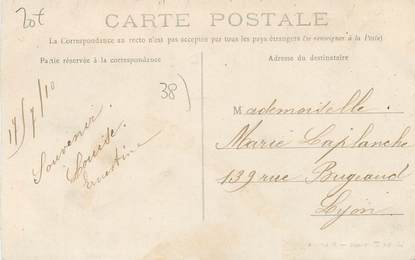 20t
CARTE POSTALE
La Correspondance au recto n'est pas acceptée par tous les pays étrangers (se renseigner à la Poste)
Partie réservée à la correspondance
Adresse du destinataire
38)
17/7/10
Souvenir.
Louise.
Ernestine
Mademoiselle.
Marie Laplanche
139 rue Bugeaud
Lyon.